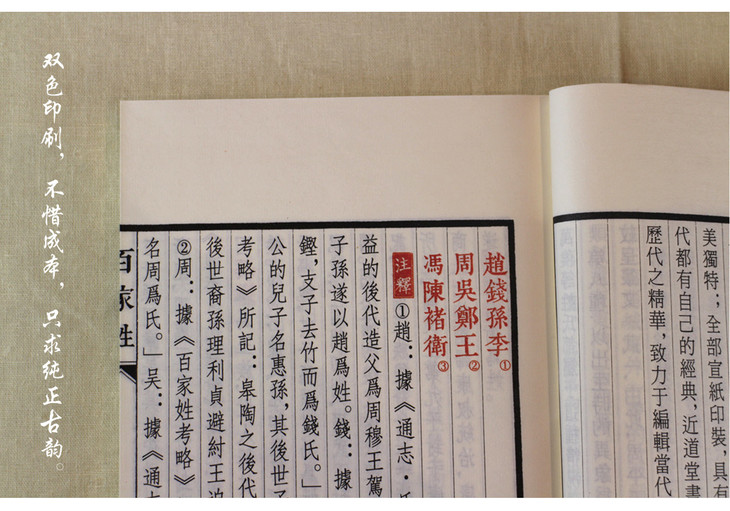 双色印刷，不惜成本，只求纯正古韵。
趙錢孫李①
周吳鄭王②
馮陳褚衛③
注釋①趙：據《通志·
益的後代造父爲周穆王駕
子孫遂以趙爲姓。錢：據
鏗，支子去竹而爲錢氏。」
公的兒子名惠孫，其後世
考略》所記：皋陶之後代
後世裔孫理利貞避紂王迫
②周：據《百家姓考略》
名周爲氏。」吴：據《通志
百家姓
美獨特；全部宣紙印裝，具有
代都有自己的經典，近道堂書
歷代之精華，致力于編輯當代